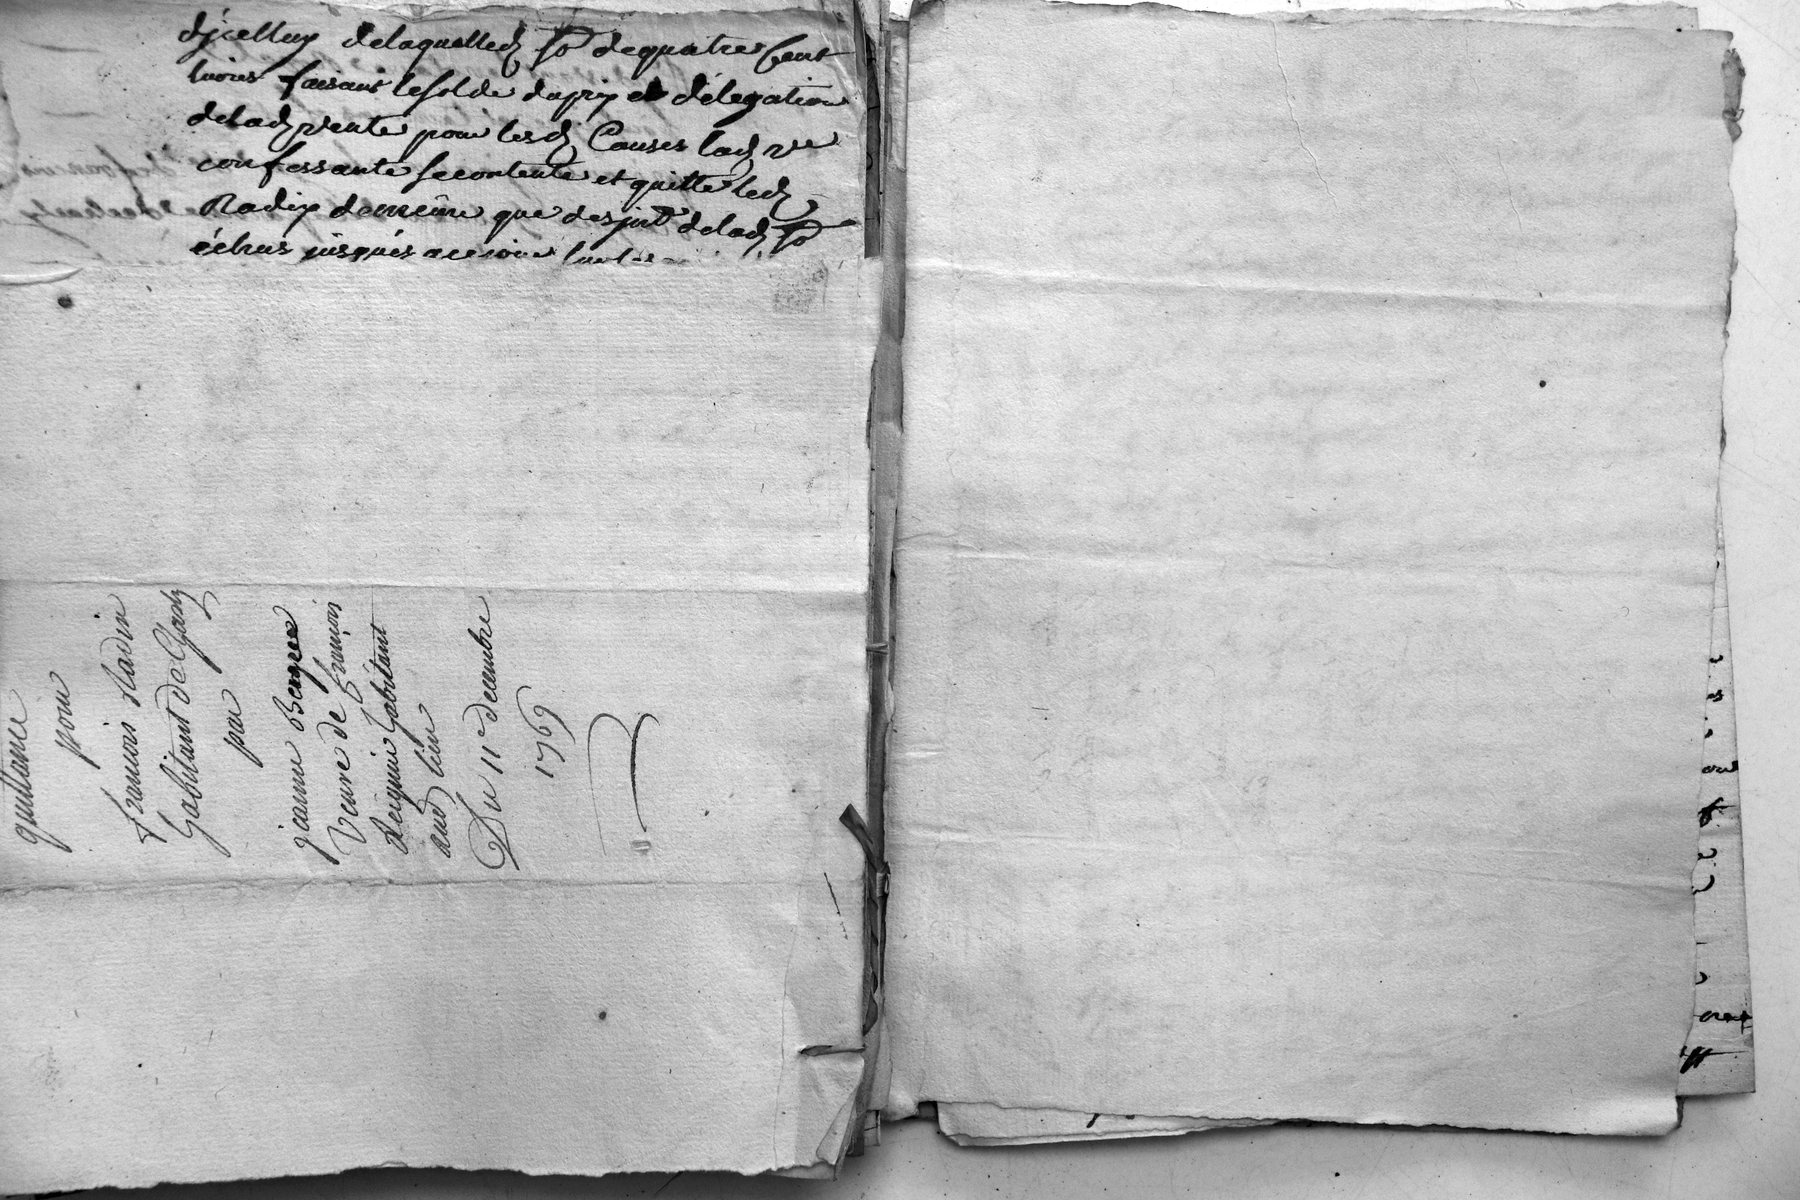 djcelluy delaquelled so dequatre Cent
livres faisant lesolde duprix et délégation
delad vente pour lesd Causes lad vve
confessante secontente et quitte led
Radix demême que des jnts delad so
échus jusqués acejour
quittance
pour
françois Radix
habitant de
par
jeanne Bergee
Veuve de françois
Reignier habitant
aud lieu
Du 11e decembre
1769